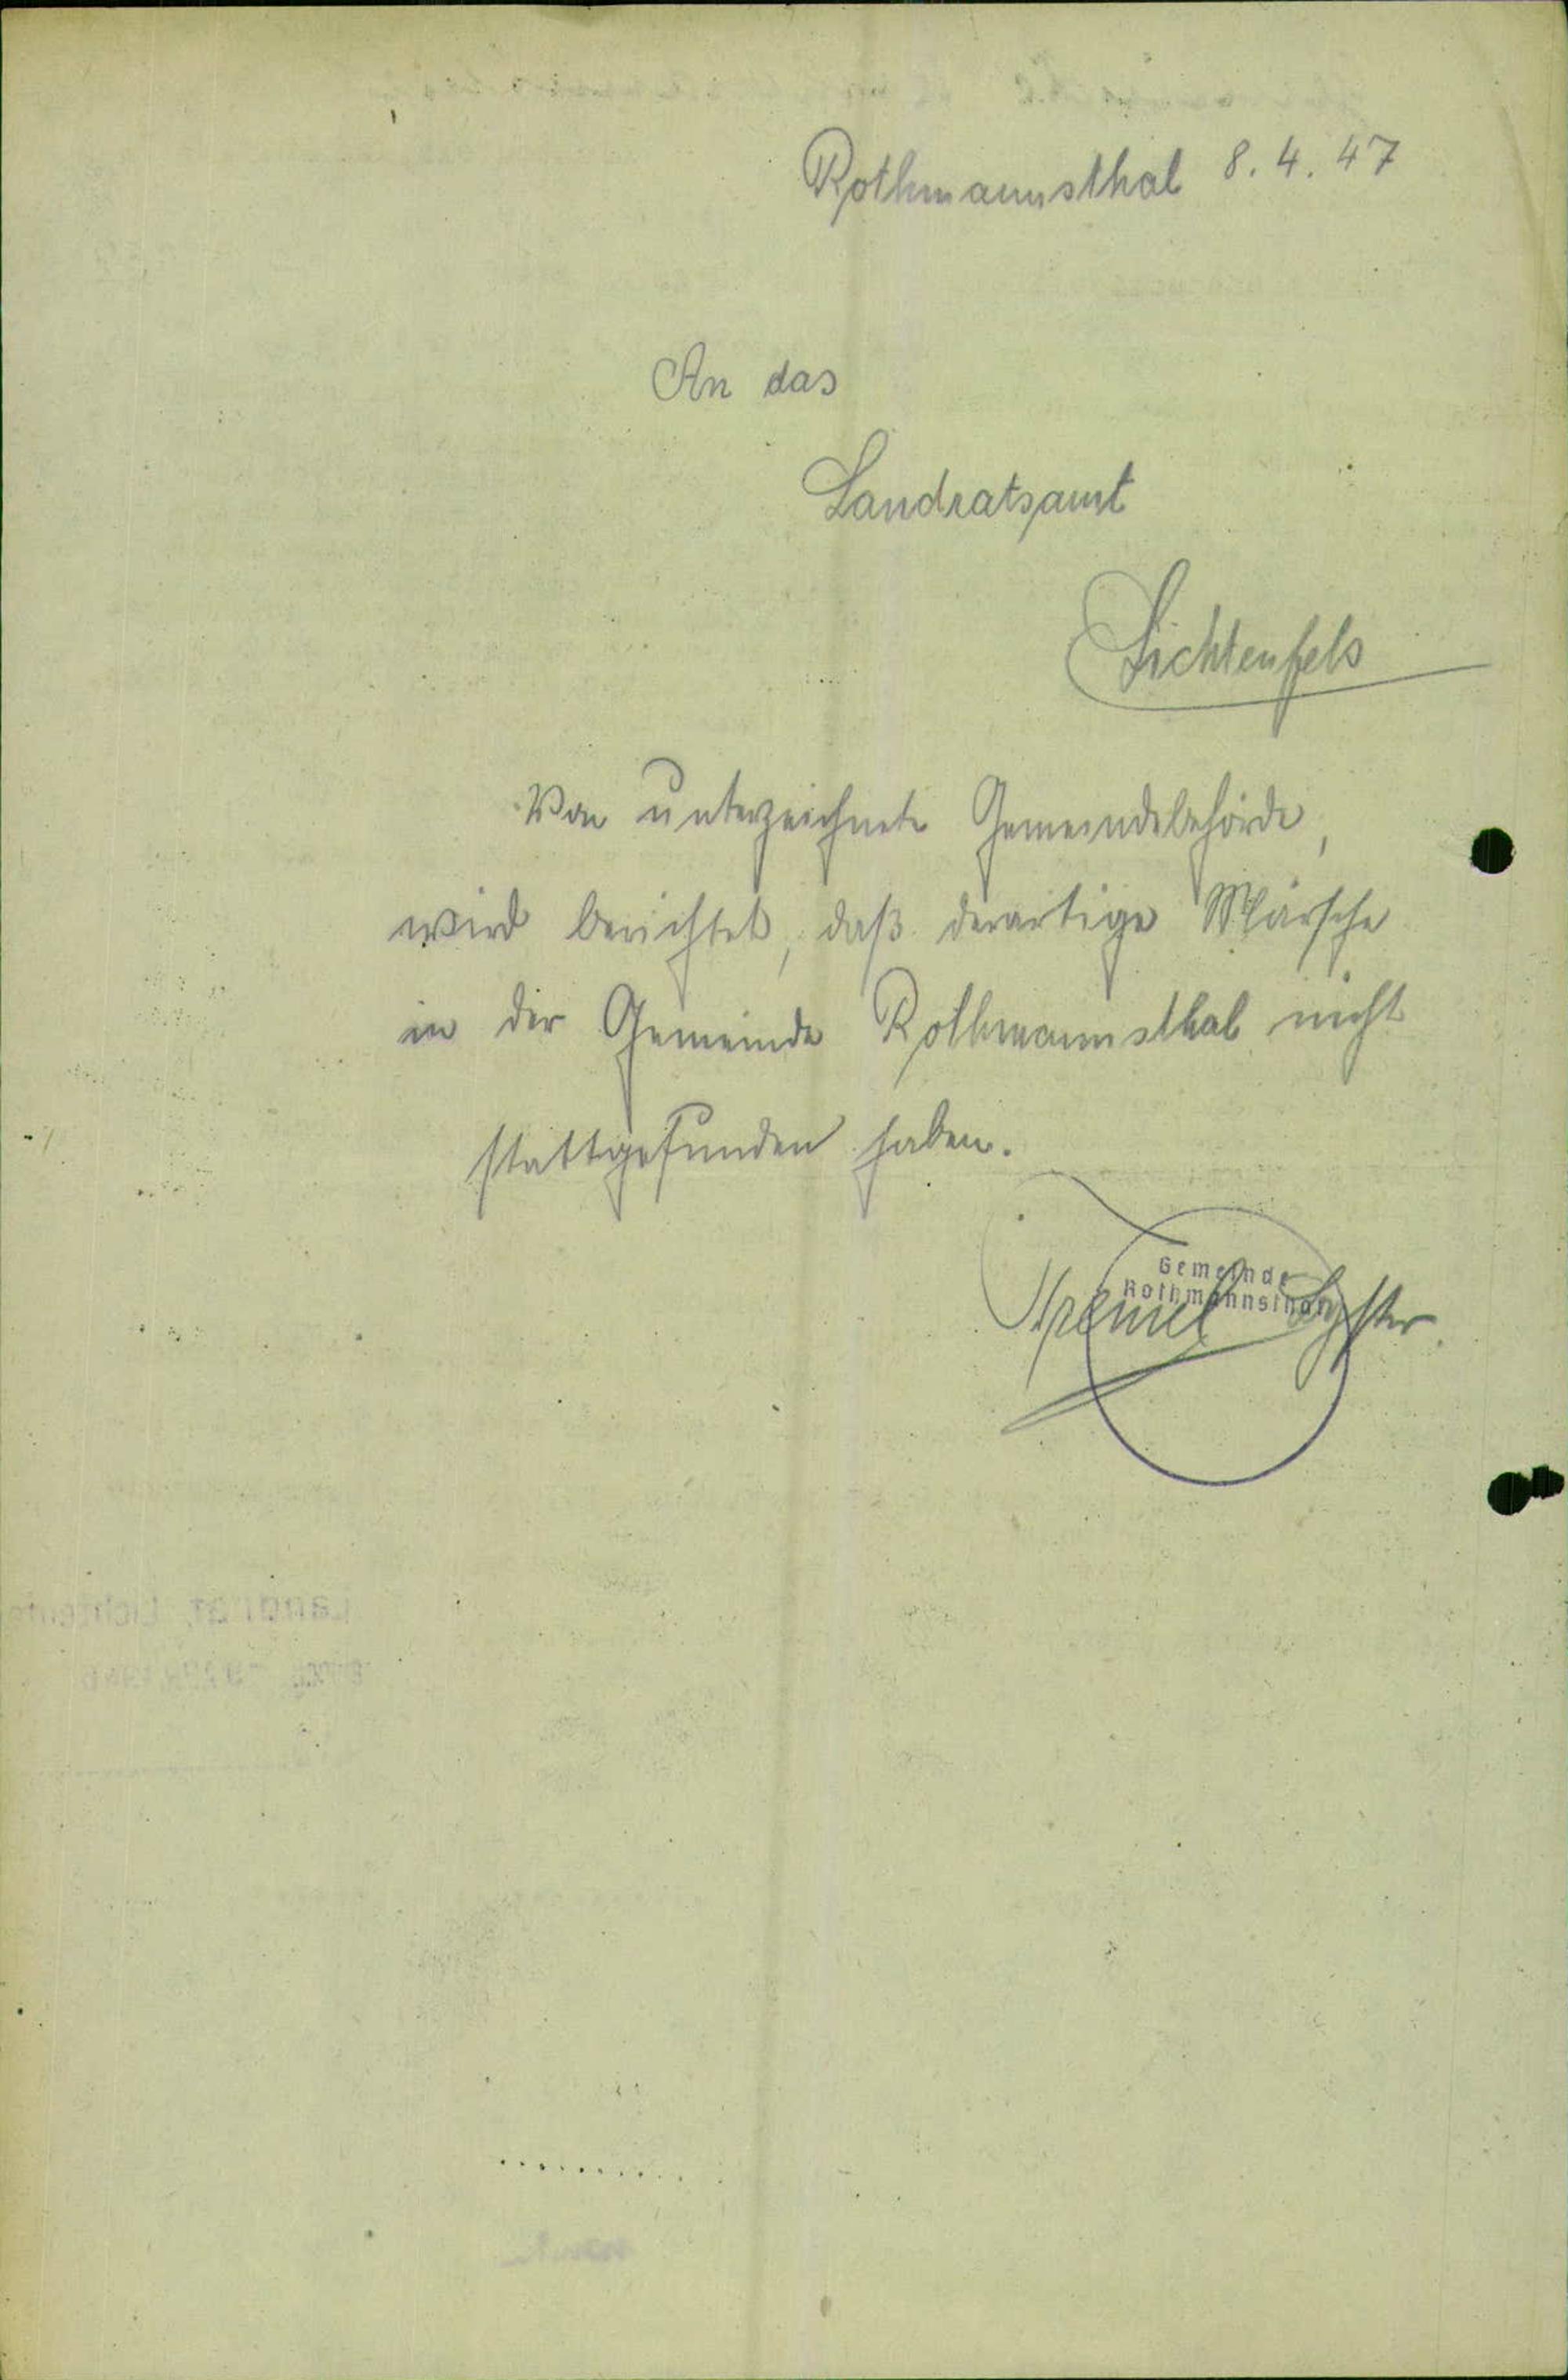 Rothmannsthal 8.4.47
An das
Landratsamt
Lichtenfels
Von unterzeichnete Gemeindebehörde,
wird berichtet, daß derartige Märsche
in der Gemeinde Rothmannsthal nicht
stattgefunden haben.
Gemeinde
Rothmannsthal